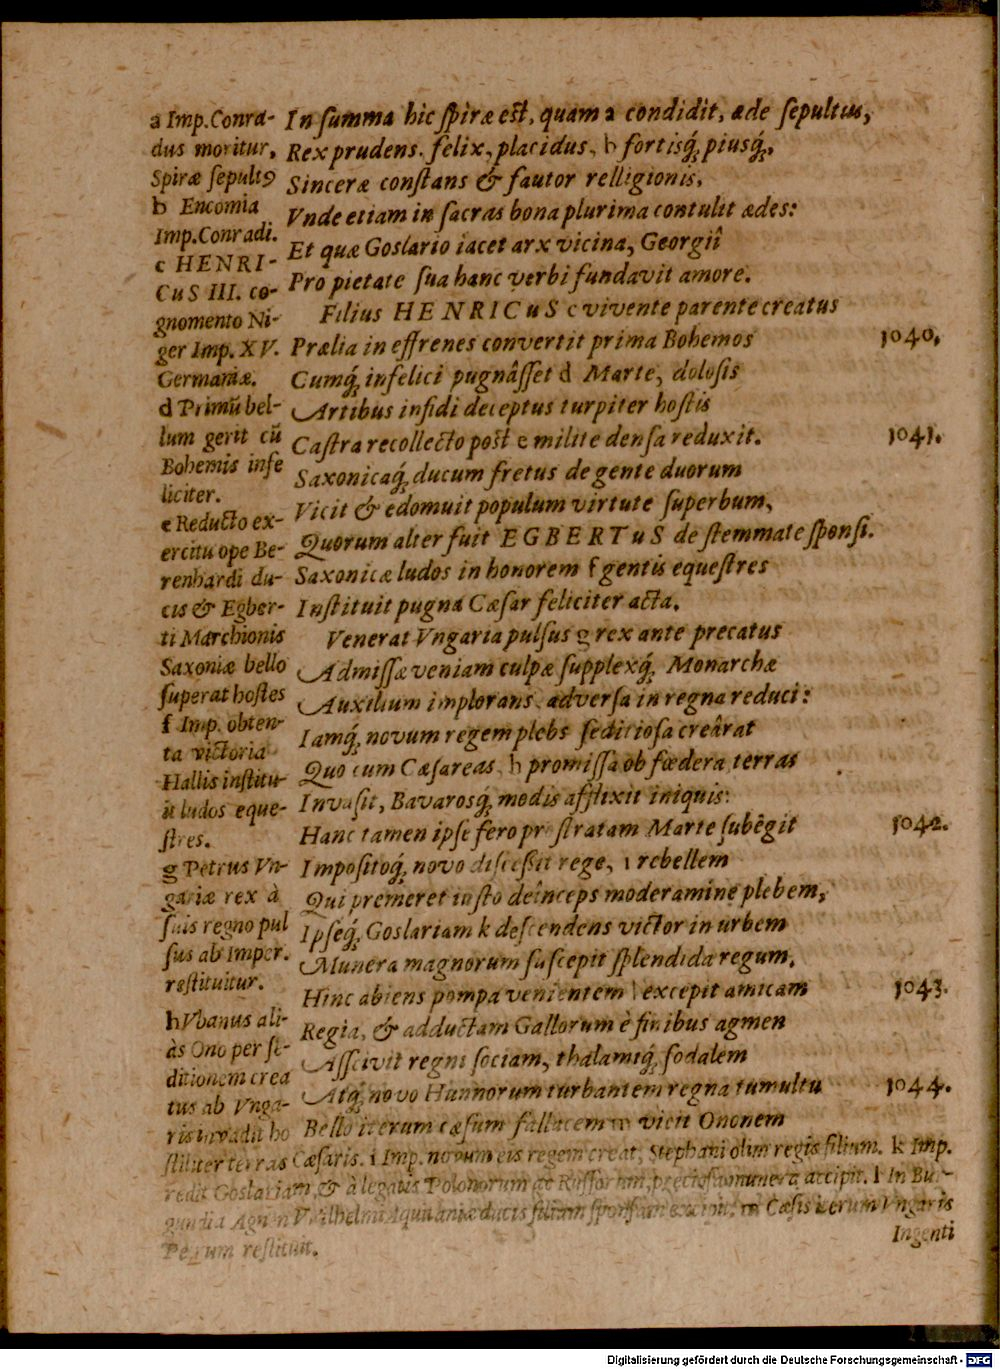 In ſumma hic ſpiræ eſt, quam a condidit, æde ſepultus,
Rex prudens. felix, placidus, b fortisq́, piusq́,
Sinceræ conſtans & fautor relligionis,
Vnde etiam in ſacras bona plurima contulit ædes:
Et quæ Goslario iacet arx vicina, Georgiî
Pro pietate ſua hanc verbi fundavit amore.
Filius HENRICuS c vivente parente creatus
Prælia in effrenes convertit prima Bohemos 1040.
Cumq́, infelici pugnâſſet d Marte, doloſis
Artibus infidi deceptus turpiter hoſtis
Caſtra recollecto poſt e milite denſa reduxit. 1041.
Saxonicaq́, ducum fretus de gente duorum
Vicit & edomuit populum virtute ſuperbum,
Quorum alter fuit EGBERTuS de ſtemmate ſponſi.
Saxonicæ ludos in honorem f gentis equeſtres
Inſtituit pugna Cæſar feliciter acta.
Venerat Vngaria pulſus g rex ante precatus
Admiſſæ veniam culpæ ſupplexq́, Monarchæ
Auxilium implorans adverſa in regna reduci:
Iamq́, novum regem plebs ſeditioſa creârat
Quo cum Cæſareas h promiſſa ob fœdera terras
Invaſit, Bavarosq́, modis afflixit iniquis:
Hanc tamen ipſe fero proſtratam Marte ſubêgit 1042.
Impoſitoq́, novo diſceßit rege, i rebellem
Qui premeret iuſto deînceps moderamine plebem,
Ipſeq́, Goslariam k deſcendens victor in urbem
Munera magnorum ſuſcepit ſplendida regum,
Hinc abiens pompa venientem l excepit amicam 1043.
Regia, & adductam Gallorum è finibus agmen
Aſſcivit regni ſociam, thalamiq́, ſodalem
Atq́, novo Hunnorum turbantem regna tumultu 1044.
Bello iterum cæſum fallacem m vicit Ononem
a Imp. Conra-
dus moritur,
Spiræ ſepultꝰ
b Encomia
Imp. Conradi.
c HENRI-
CuS III. co-
gnomento Ni-
ger Imp. XV.
Germaniæ.
d Primũ bel-
lum gerit cũ
Bohemis infe
liciter.
e Reducto ex-
ercitu ope Be-
renhardi du-
cis & Egber-
ti Marchionis
Saxoniæ bello
ſuperat hoſtes
f Imp. obten-
ta victoria
Hallis inſtitu-
it ludos eque-
ſtres.
g Petrus Vn-
gariæ rex à
ſuis regno pul
ſus ab Imper.
reſtituitur.
h Vbanus ali-
às Ono per ſe-
ditionem crea
tus ab Vnga-
ris invadit ho
ſtiliter terras Cæſaris. i Imp. novum eis regem creat, Stephani olim regis filium. k Imp.
redit Goslariam, & à legatis Polonorum ac Ruſſorum, precioſa munera accipit. l In Bur-
gundia Agnen Wilhelmi Aquitaniæ ducis filiam ſponſam excipit. m Cæſis iterum Vngaris
Petrum reſtituit.
Ingenti
Digitalisierung gefördert durch die Deutsche Forschungsgemeinschaft - DFG